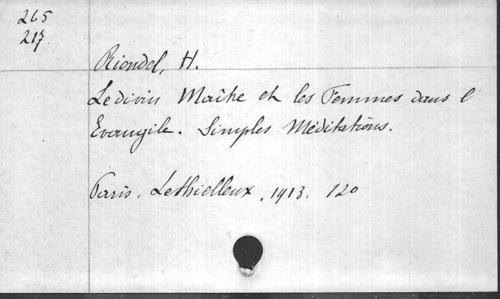 265
217
Riondel, H.
Le divin Maître et les Femmes dans l'
Evangile. Simples Méditations.
Paris. Lethielleux, 1913. 12o